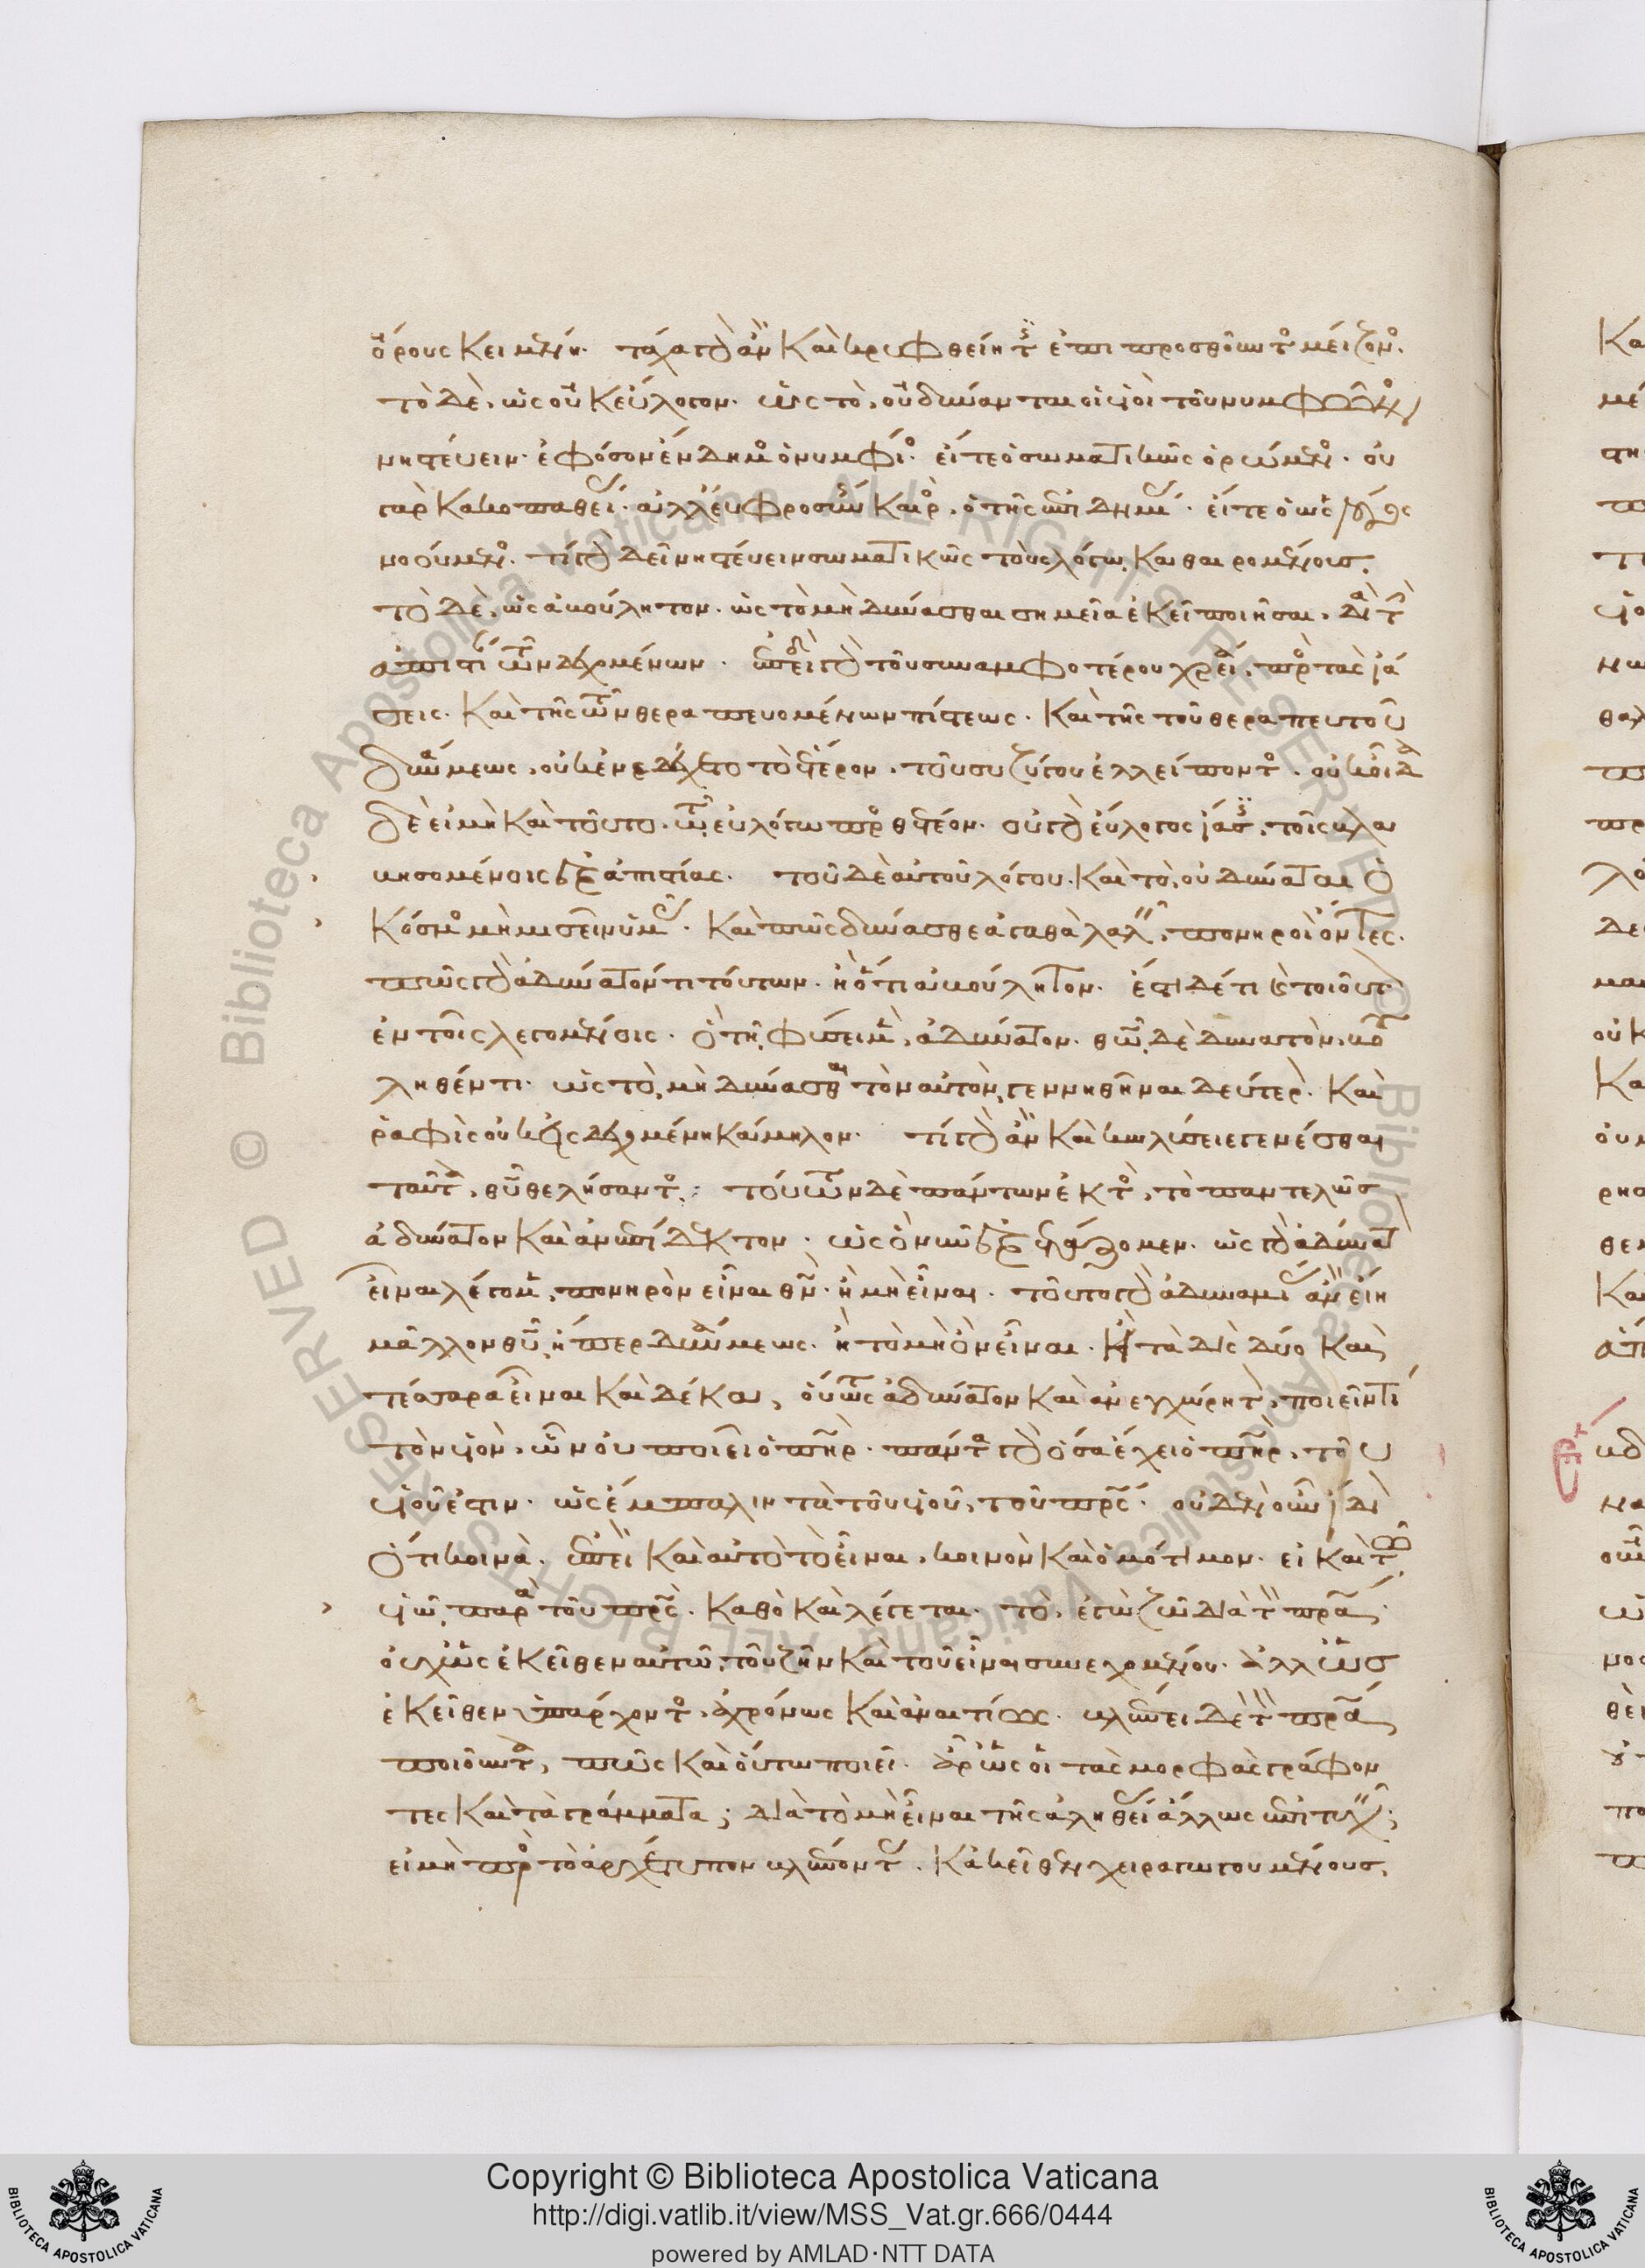 ὄρους κειμένη· τάχα γὰρ ἂν καὶ κρυφθείη τις ἐπιπροσθοῦντος μείζονος·
τὸ δὲ, ὡς οὐκ εὔλογον· ὡς τὸ, οὐ δύνανται οἱ υἱοὶ τοῦ νυμφῶνος
νηστεύειν· ἐφόσον ἔνδημος ὁ νυμφίος· εἴτε ὁ σωματικῶς ὁρώμενος· οὐ
γὰρ κακοπαθείας ἀλλ' εὐφροσύνης καιρὸς, ὁ τῆς ἐπιδημίας· εἴτε ὁ ὡς λόγος
νοούμενος· τί γὰρ δεῖ νηστεύειν σωματικῶς τοὺς λόγω καθαιρομένους·
τὸ δὲ, ὡς ἀβούλητον· ὡς τὸ μὴ δύνασθαι σημεῖα ἐκεῖ ποιῆσαι, διὰ τὴν
ἀπιστίαν τῶν δεχομένων· ἐπειδὴ γὰρ τοῦ συναμφοτέρου χρεία, πρὸς τὰς ἰά
σεις· καὶ τῆς τῶν θεραπευομένων πίστεως· καὶ τῆς τοῦ θεραπευτοῦ
δυνάμεως, οὐκ ἐνεδέχετο τὸ ἕτερον, τοῦ συζύγου ἐλλείποντος· οὐκ οἶδα
δὲ εἰ μὴ καὶ τοῦτο, τῶ εὐλόγω προσθετέον· οὐ γὰρ εὔλογος ἴασις, τοῖς βλα
βησομένοις ἐξ ἀπιστίας· τοῦ δὲ αὐτοῦ λόγου· καὶ τὸ, οὐ δύναται ὁ
κόσμος μὴ μισεῖν ὑμᾶς· καὶ πῶς δύνασθε ἀγαθὰ λαλεῖν, πονηροὶ ὄντες·
πῶς γὰρ ἀδύνατόν τι τούτων· ἢ ὅτι ἀβούλητον· ἔστι δέ τι καὶ τοιοῦτον
ἐν τοῖς λεγομένοις· ὃ τῆ φύσει μὲν, ἀδύνατον· θεῶ δὲ δυνατὸν, βου
ληθέντι· ὡς τὸ, μὴ δύνασθαι τὸν αὐτὸν, γεννηθῆναι δεύτερον· καὶ
ῥαφὶς οὐκ εἰσδεχομένη κάμηλον· τί γὰρ ἂν καὶ κωλύσειε γενέσθαι
ταῦτα, θεοῦ θελήσαντος: τούτων δὲ πάντων ἐκτὸς, τὸ παντελῶς
ἀδύνατον καὶ ἀνεπίδεκτον· ὡς ὃ νῦν ἐξετάζομεν· ὡς γὰρ ἀδύνατον
εἶναι λέγομεν, πονηρὸν εἶναι θεὸν· ἢ μὴ εἶναι· τοῦτο γὰρ ἀδυναμίας ἂν εἴη
μᾶλλον θεοῦ, ἤπερ δυνάμεως· ἢ τὸ μὴ ὂν εἶναι· ἢ τὰ δὶς δύο καὶ
τέσσαρα εἶναι καὶ δέκα, οὕτως ἀδύνατον καὶ ἀνεγχώρητον, ποιεῖν τι
τὸν υἱὸν, ὧν οὐ ποιεῖ ὁ πατήρ· πάντα γὰρ ὅσα ἔχει ὁ πατὴρ, τοῦ
υἱοῦ ἐστιν· ὡς ἔμπαλιν τὰ τοῦ υἱοῦ, τοῦ πατρός· οὐδὲν οὖν ἴδιον
ὅτι κοινὰ· ἐπεὶ καὶ αὐτὸ τὸ εἶναι, κοινὸν καὶ ὁμότιμον· εἰ καὶ τῶ
υἱῶ, παρὰ τοῦ πατρὸς· καθὸ καὶ λέγεται· τὸ, ἐγὼ ζῶ διὰ τὸν πατέρα·
οὐχ ὡς ἐκεῖθεν αὐτῶ, τοῦ ζῆν καὶ τοῦ εἶναι συνεχομένου· ἀλλ' ὡς
ἐκεῖθεν ὑπάρχοντος, ἀχρόνως καὶ ἀναιτίως· βλέπει δὲ τὸν πατέρα
ποιοῦντα, πῶς καὶ οὕτω ποιεῖ· ἆρ' ὡς οἱ τὰς μορφὰς γράφον
τες καὶ τὰ γράμματα; διὰ τὸ μὴ εἶναι τῆς ἀληθείας ἄλλως ἐπιτυχεῖν·
εἰ μὴ πρὸς τὸ ἀρχέτυπον βλέποντας· κἀκεῖθεν χειραγωγουμένους·